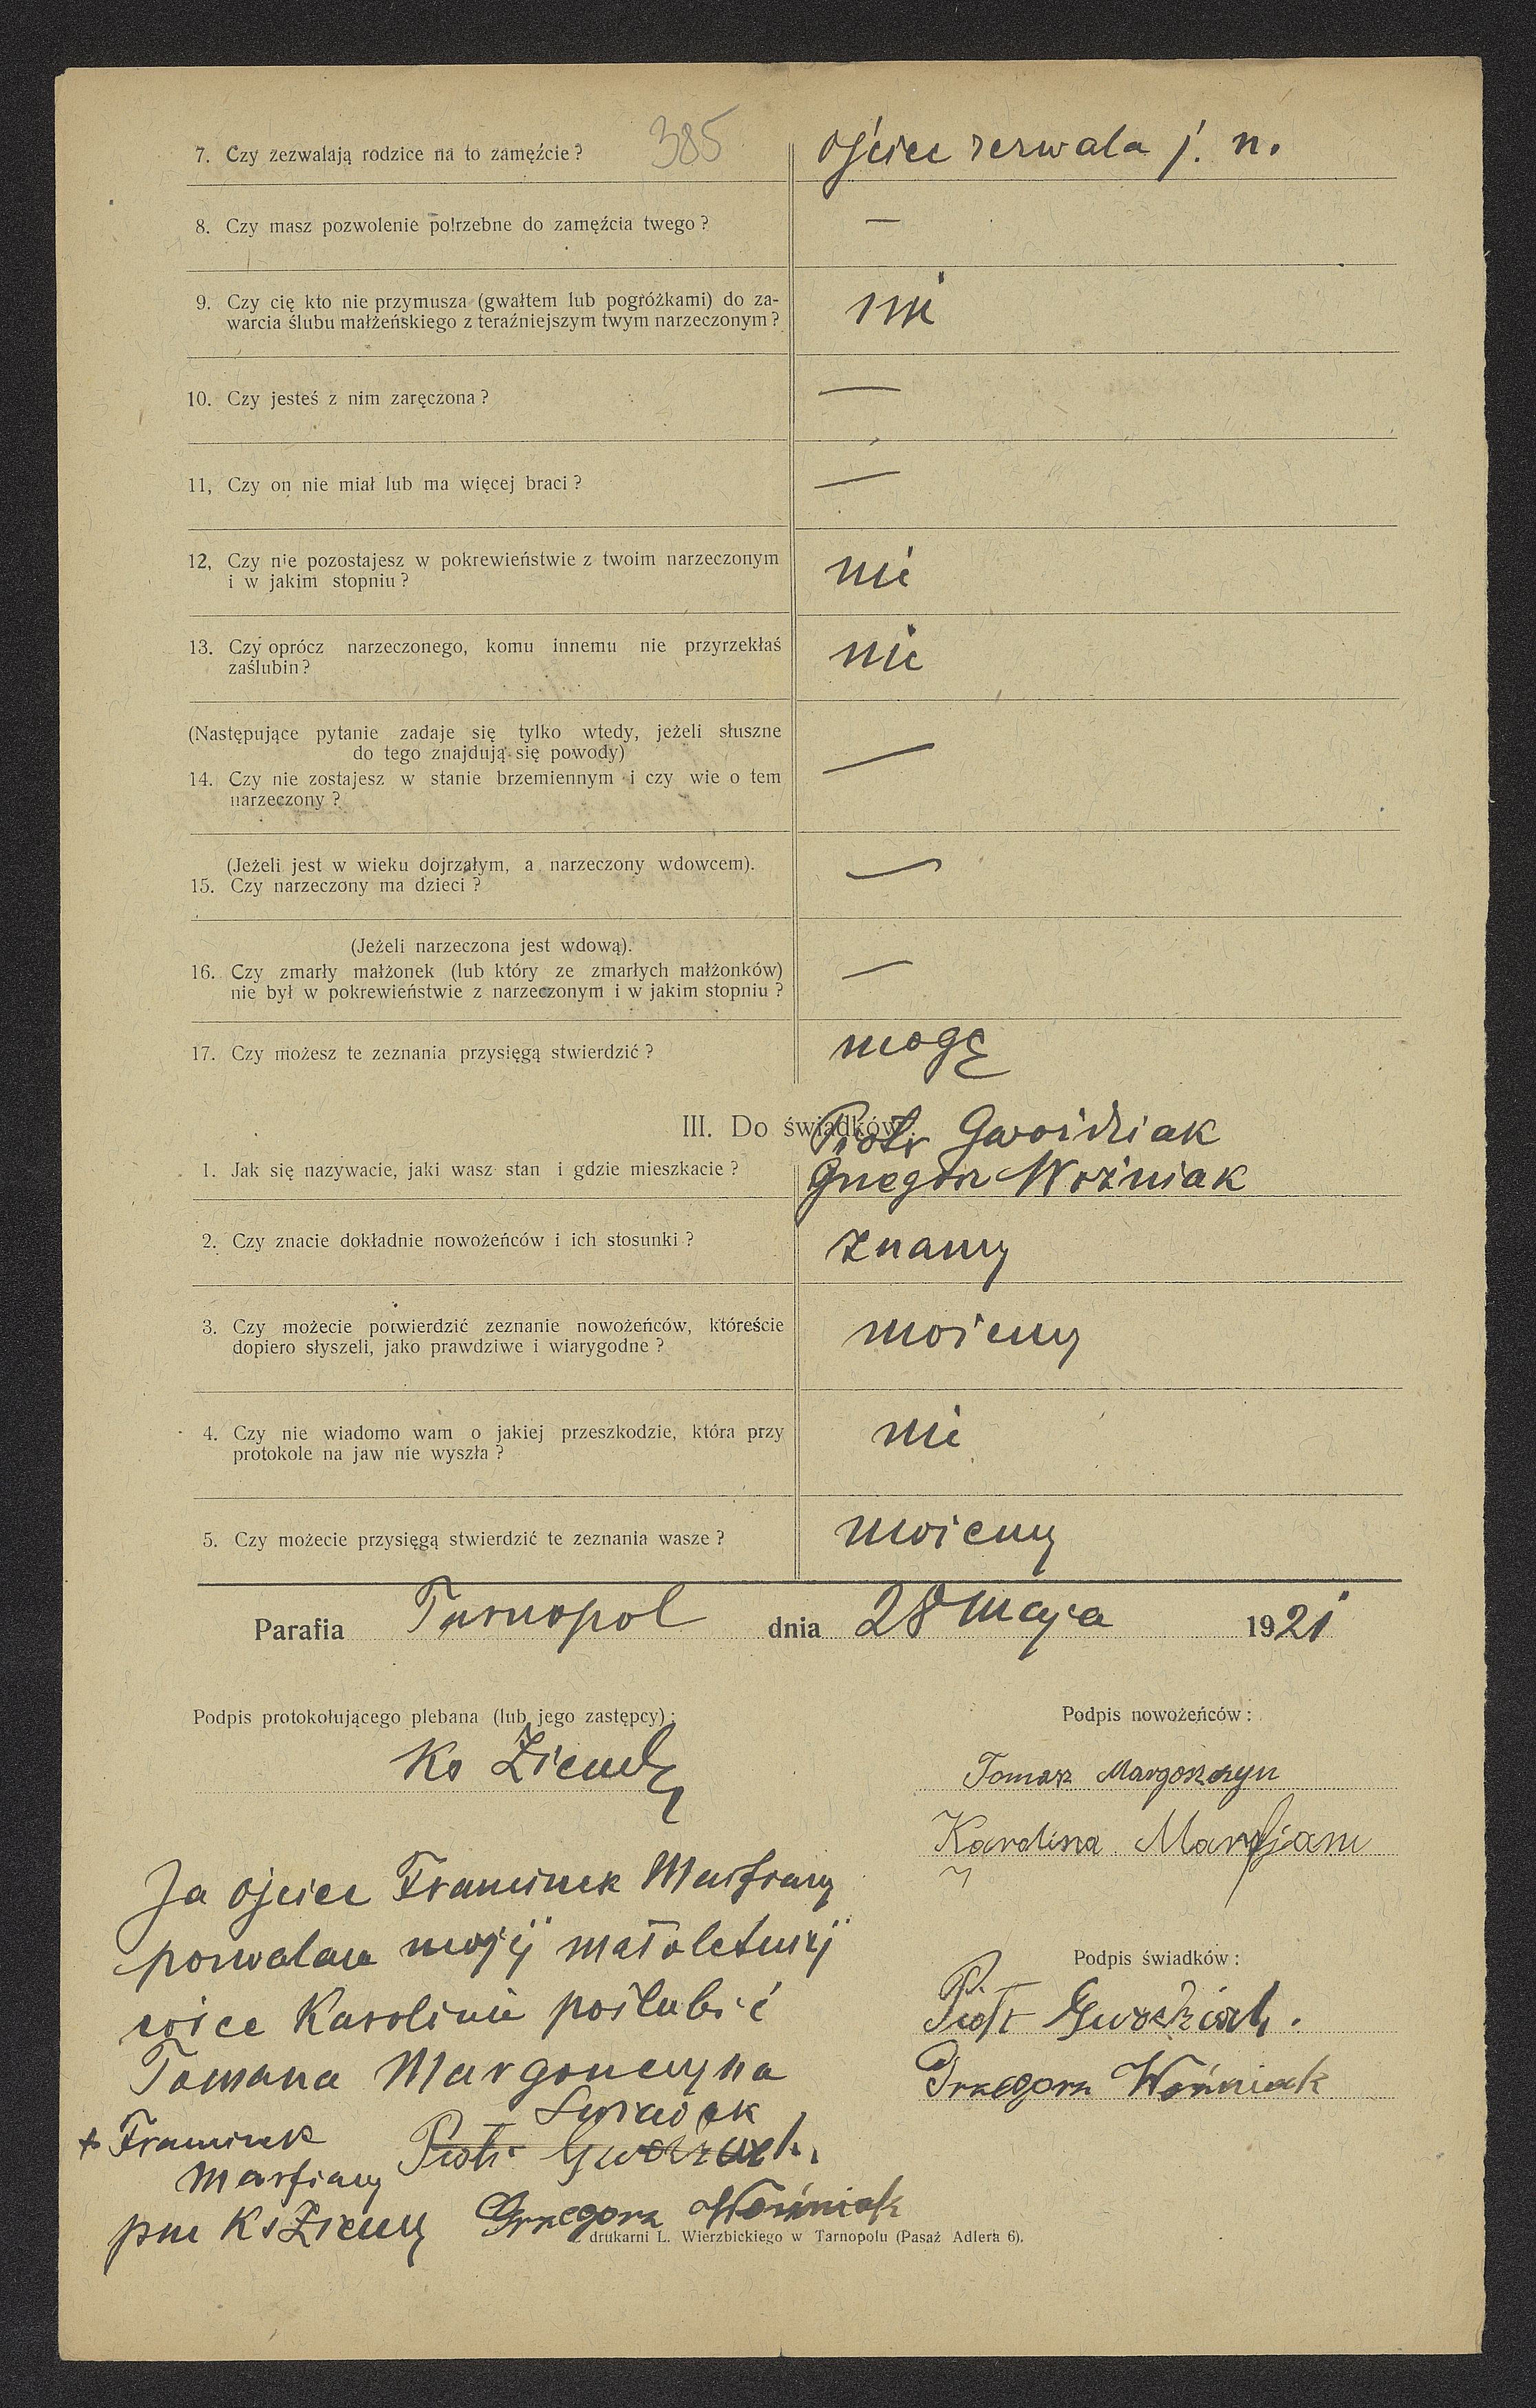 385
7. Czy zezwalają rodzice na to zamęźcie? ojciec zezwala j. n.
8. Czy masz pozwolenie potrzebne do zamęźcia twego? —
9. Czy cię kto nie przymusza (gwałtem lub pogróżkami) do za-
warcia ślubu małżeńskiego z teraźniejszym twym narzeczonym? nie
10. Czy jesteś z nim zaręczona? —
11, Czy on nie miał lub ma więcej braci? —
12, Czy nie pozostajesz w pokrewieństwie z twoim narzeczonym
i w jakim stopniu? nie
13. Czy oprócz narzeczonego, komu innemu nie przyrzekłaś
zaślubin? nie
(Następujące pytanie zadaje się tylko wtedy, jeżeli słuszne
do tego znajdują się powody)
14. Czy nie zostajesz w stanie brzemiennym i czy wie o tem
narzeczony? —
(Jeżeli jest w wieku dojrzałym, a narzeczony wdowcem).
15. Czy narzeczony ma dzieci? —
(Jeżeli narzeczona jest wdową).
16. Czy zmarły małżonek (lub który ze zmarłych małżonków)
nie był w pokrewieństwie z narzeczonym i w jakim stopniu? —
17. Czy możesz te zeznania przysięgą stwierdzić? mogę
III. Do świadków.
Piotr Gwoździak
1. Jak się nazywacie, jaki wasz stan i gdzie mieszkacie? Grzegorz Woźniak
2. Czy znacie dokładnie nowożeńców i ich stosunki? znamy
3. Czy możecie potwierdzić zeznanie nowożeńców, któreście
dopiero słyszeli, jako prawdziwe i wiarygodne? możemy
4. Czy nie wiadomo wam o jakiej przeszkodzie, która przy
protokole na jaw nie wyszła? nie
5. Czy możecie przysięgą stwierdzić te zeznania wasze? możemy
Parafia Tarnopol dnia 28 maja 1921
Podpis protokołującego plebana (lub jego zastępcy):
Ks
Podpis nowożeńców:
Tomasz Margoszczyn
Karolina
Ja ojciec Franciszek Marfiany
pozwalam mojej małoletniej
córce Karolinie poślubić
Tomasza Margoszczyna
+ Franciszek
Marfiany
Świadek
Piotr Gwoździak.
Grzegorz Woźniak
Podpis świadków:
Piotr Gwoździak.
Grzegorz Woźniak
drukarni L. Wierzbickiego w Tarnopolu (Pasaż Adlera 6).